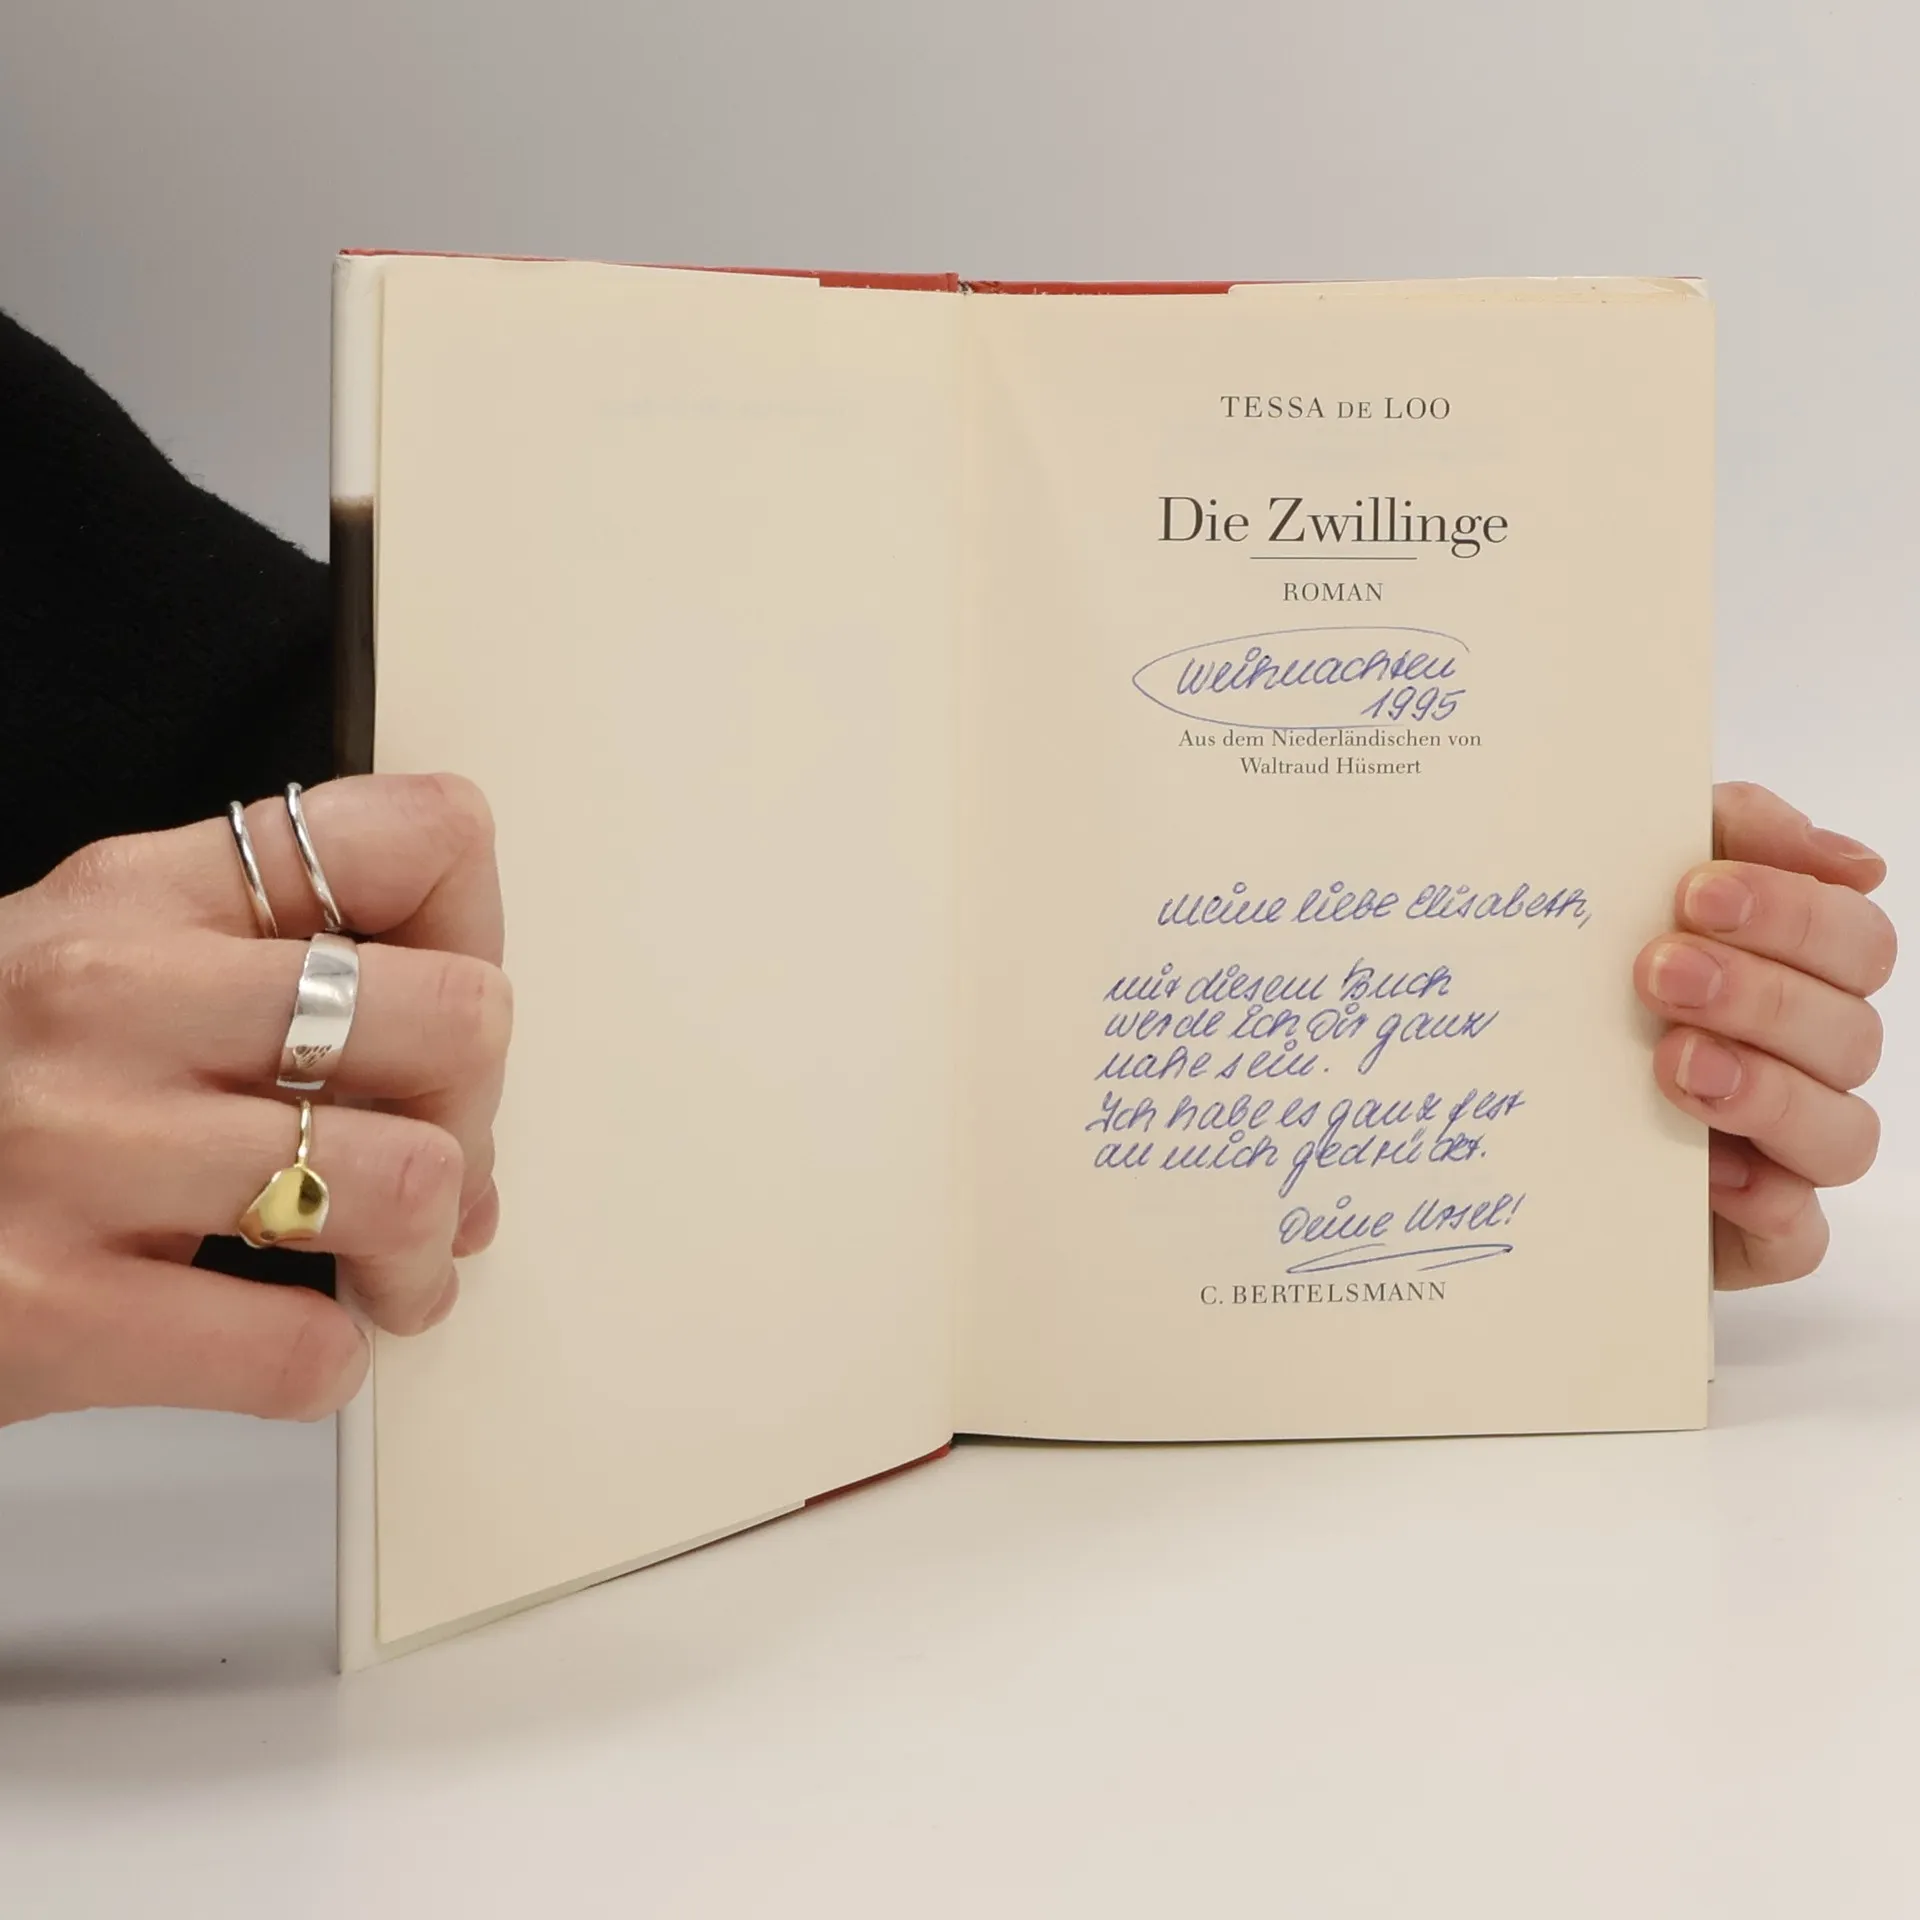 TESSA DE LOO
Die Zwillinge
ROMAN
Weihnachten
1995
Aus dem Niederländischen von
Waltraud Hüsmert
Meine liebe Elisabeth,
mit diesem Buch
werde ich Dir ganz
nahe sein.
Ich habe es ganz fest
an mich gedrückt.
Deine Ursel!
C. BERTELSMANN